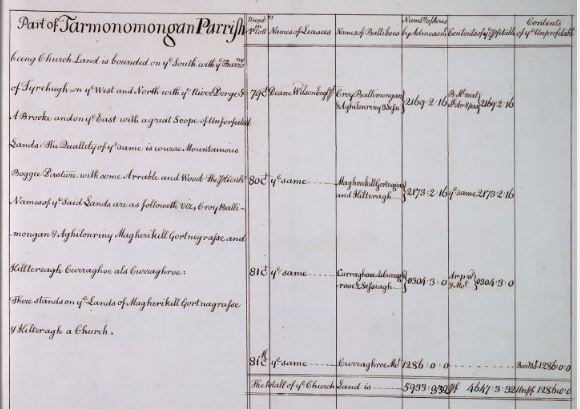 Part of Tarmonomongan Parrish
being Church Land is bounded on yᵉ South with yᵉ Barroⁿʸ
of Tyrehugh on yᵉ West and North with yᵉ River Dorge &
A Brooke and on yᵉ East with a great Scope of Unforfeited
Lands: The Quallety of yᵉ same is course Mountainous
Boggie Pasture with some Arrable and Wood The
Names of yᵉ Said Lands are as followeth Viz, Croy Balli-
mongan & Aghilonriny Magherikill Gortnagrasse and
Killtereagh Curraghoe als Curraghroe:
There stands on yᵉ Lands of Magherikill Gortnagrasse
& Kilteragh a Church.
in Plott Names of Leases Names of Balliboes by Admeasm Contents of yᵉ of yᵉ Unprofitable
Contents
79C Deane Wilson Croy Ballimongan & Aghilonriny 2169:2:16 2169:2:16
80C yᵉ same Magherikill Gortnagras and Kilteragh 2173:2:16 yᵉ same 2173:2:16
81C yᵉ same Curraghoe als Curragh- roe & Sessuagh 0304:3:0 0304:3:0
81C yᵉ same Curraghroe Moᵗ 1286:0:0 1286:0:0
The totall of yᵉ Church Land is 5933: 4647:3:32 1286:0:0